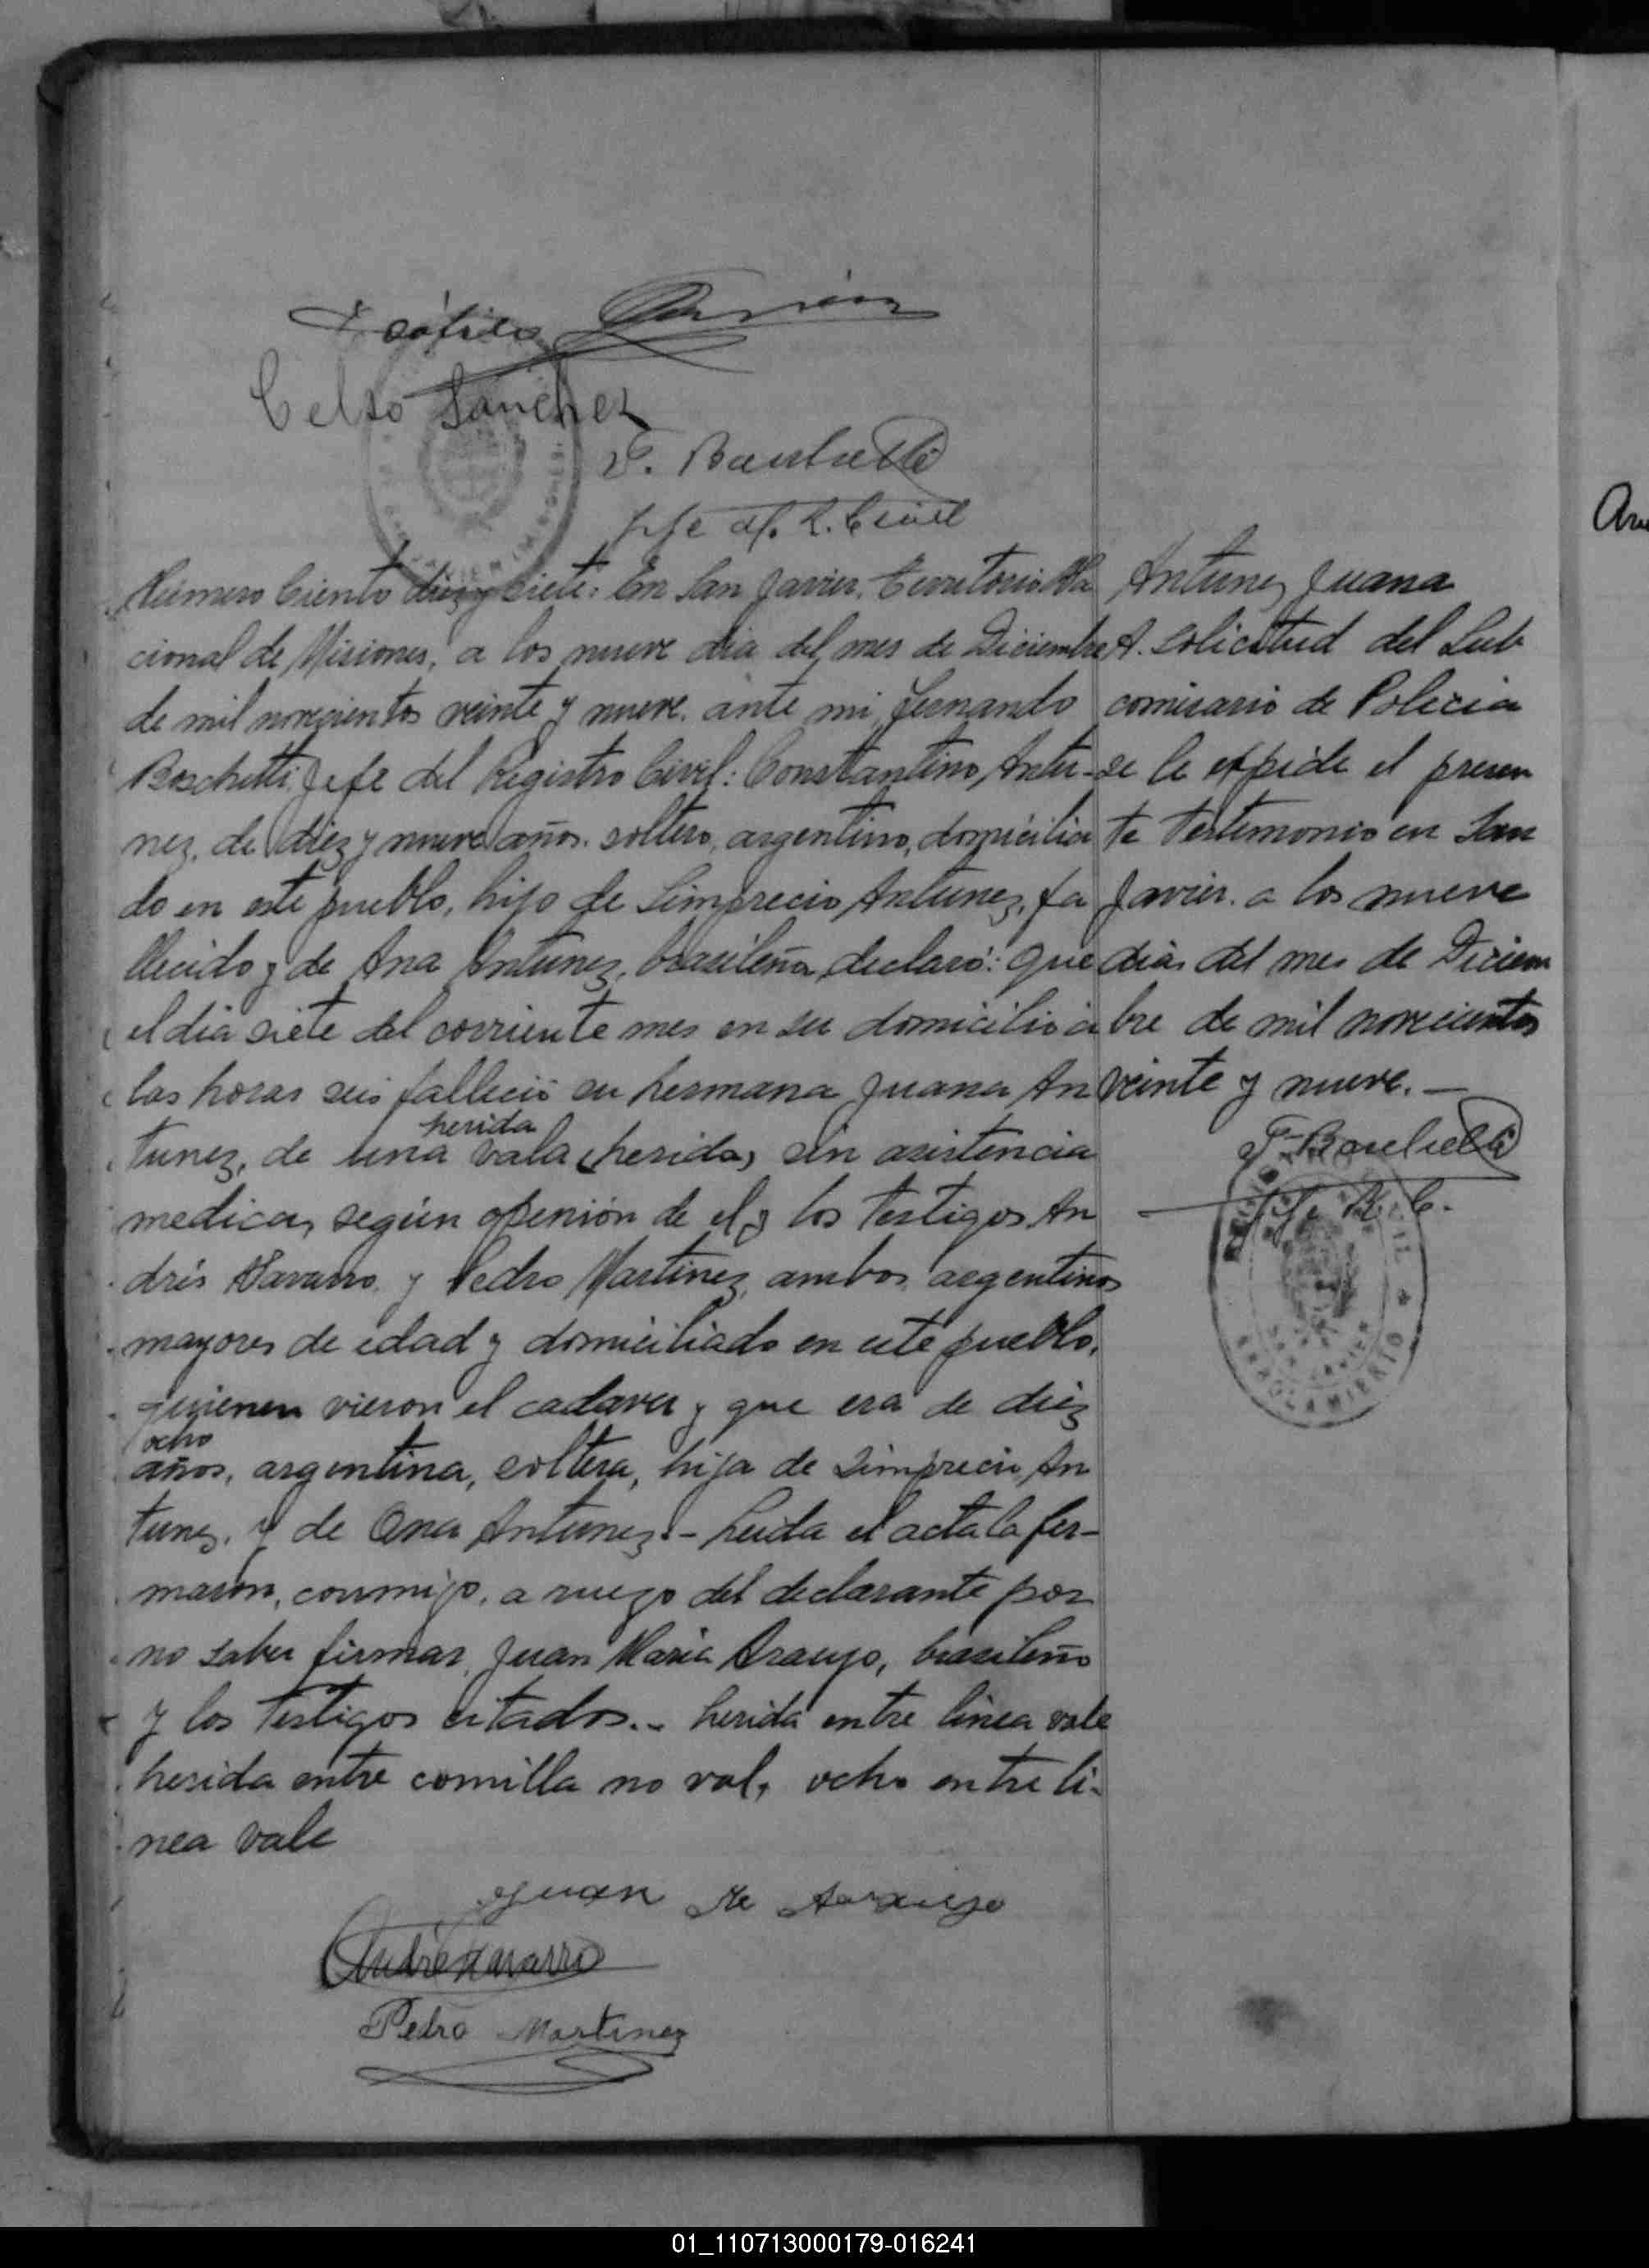 Celso Sanchez
jefe del R. Civil
Número Ciento diez y siete: En San Javier, Territorio Na
cional de Misiones, a los nueve dia del mes de Diciembre
de mil novecientos veinte y nueve. ante mi, Fernando
Boschetti, Jefe del Registro Civil: Constantino Antu-
nez, de diez y nueve años. soltero, argentino, domicilia
do en este pueblo, hijo de Simprecio Antunez, fa
llecido y de Ana Antunez, brasileña, declaró: que
el dia siete del corriente mes en su domicilio a
las horas seis falleció su hermana Juana An
herida
tunez, de una vala (herida) sin asistencia
medica, según openión de el y los testigos An
drés Navarro y Pedro Martinez, ambos argentinos
mayores de edad y domiciliado en este pueblo,
quienen vieron el cadaver y que era de diez
ocho
años, argentina, soltera, hija de Simprecio An
tunez. y de Ana Antunez.- Leida el acta la fir-
maron, conmigo, a ruego del declarante por
no saber firmar, Juan Maria Araujo, brasileño
y los testigos citados.- herida entre linea vale
herida entre comilla no val, ocho entre li-
nea vale
Juan Ma Araujo
Andre Navarro
Pedro Martinez
Antunez Juana
A solicitud del Sub
comisario de Policia
se le expide el presen
te testemonio en San
Javier. a los nueve
dias del mes de Diciem
bre de mil novecientos
veinte y nueve.-
F. Boschetti
J. R. C.
01_110713000179-016241